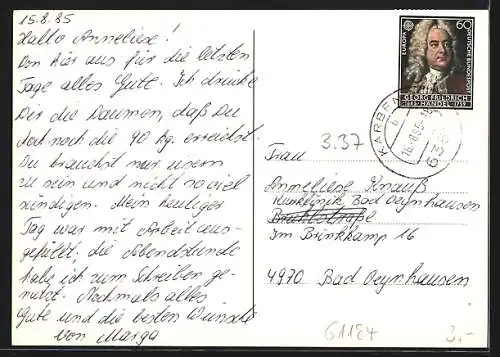 15.8.85
Hallo Anneliese!
Von hier aus für die letzten
Tage alles Gute. Ich drücke
Dir die Daumen, daß Du
doch noch die 90 kg. erreichst.
Du brauchst nur eisern
zu sein und nicht so viel
sündigen. Mein heutiger
Tag war mit Arbeit aus-
gefüllt; die Abendstunde
habe ich zum Schreiben ge-
nutzt. Nochmals alles
Gute und die besten Wünsche
von Marga
EUROPA
60
DEUTSCHE BUNDESPOST
GEORG FRIEDRICH
1685 HÄNDEL 1759
KARBEN
16.8.85
3.37
Frau
Anneliese Knauß
Kurklinik Bad Oeynhausen
Im Brinkkamp 16
4970 Bad Oeynhausen
61184
3.-